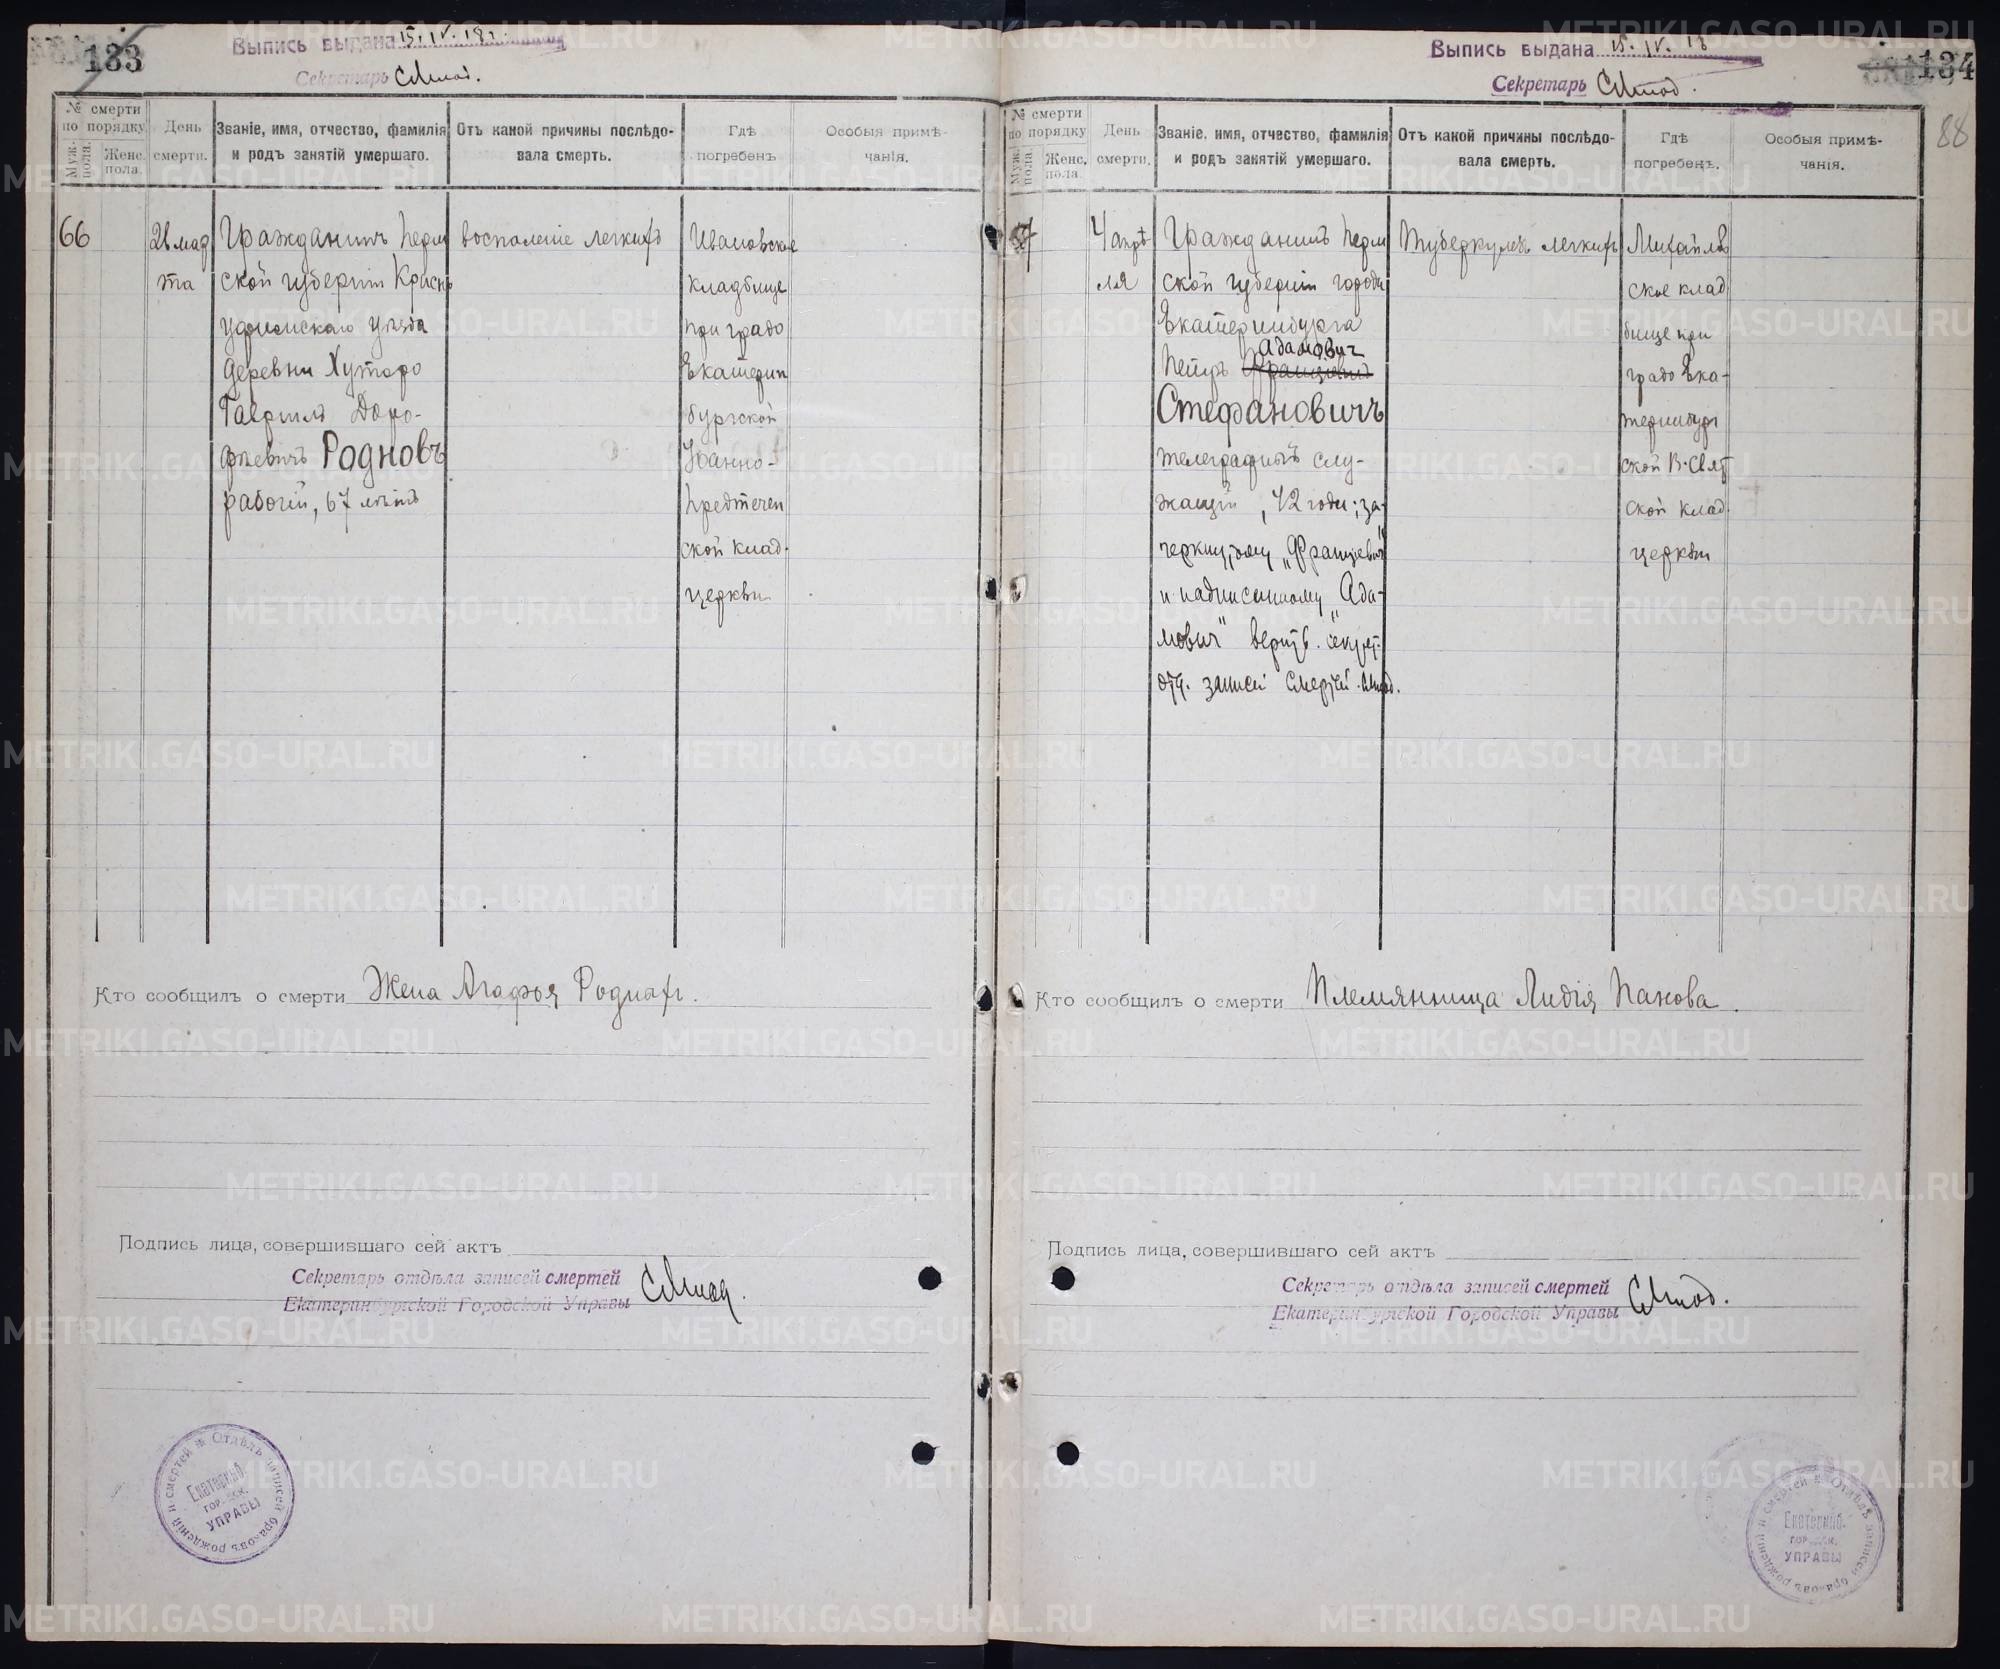 133
Выпись выдана 15. IV. 18 г.
Секретарь
№ смерти по порядку
Муж. пола.
Женс. пола.
День смерти.
Званіе, имя, отчество, фамилія и родъ занятій умершаго.
Отъ какой причины послѣдовала смерть.
Гдѣ погребенъ
Особыя примѣчанія.
66
28 мар
та
Гражданинъ Перм
ской губерніи Красно
уфимскаго уѣзда
деревни
Гавріилъ Доро-
феевичъ Родновъ
рабочій, 67 лѣтъ
воспаленіе легкихъ
Ивановское
кладбище
при градо
Екатерин
бургской
Іоанно-
Предтечен
ской клад.
церкви
Кто сообщилъ о смерти Жена Агафья
Подпись лица, совершившаго сей актъ
Секретарь отдѣла записей смертей
Екатеринбургской Городской Управы
Отдѣлъ записей браковъ рожденій и смертей
Екатеринб.
ГОР. СК.
УПРАВЫ
134
88
Выпись выдана 15. IV. 18
Секретарь
№ смерти по порядку
Муж. пола.
Женс. пола.
День смерти.
Званіе, имя, отчество, фамилія и родъ занятій умершаго.
Отъ какой причины послѣдовала смерть.
Гдѣ погребенъ.
Особыя примѣчанія.
67
4 апрѣ
ля
Гражданинъ Перм
ской губерніи города
Екатеринбурга
Адамович
Петръ Францевич
Стефановичъ
телеграфный слу-
жащій, 42 года; за-
черкнутому „Францевич"
и надписанному „Ада-
мович" верить. секрет.
отд. записей смертей
Туберкулезъ легкихъ
Михайлов
ское клад
бище при
градо Ека-
теринбург
ской В-Свят
ской клад.
церкви
Кто сообщилъ о смерти Племянница Лидія Панова.
Подпись лица, совершившаго сей актъ
Секретарь отдѣла записей смертей
Екатеринбургской Городской Управы
Отдѣлъ записей браковъ рожденій и смертей
Екатеринб.
ГОР. СК.
УПРАВЫ
METRIKI.GASO-URAL.RU